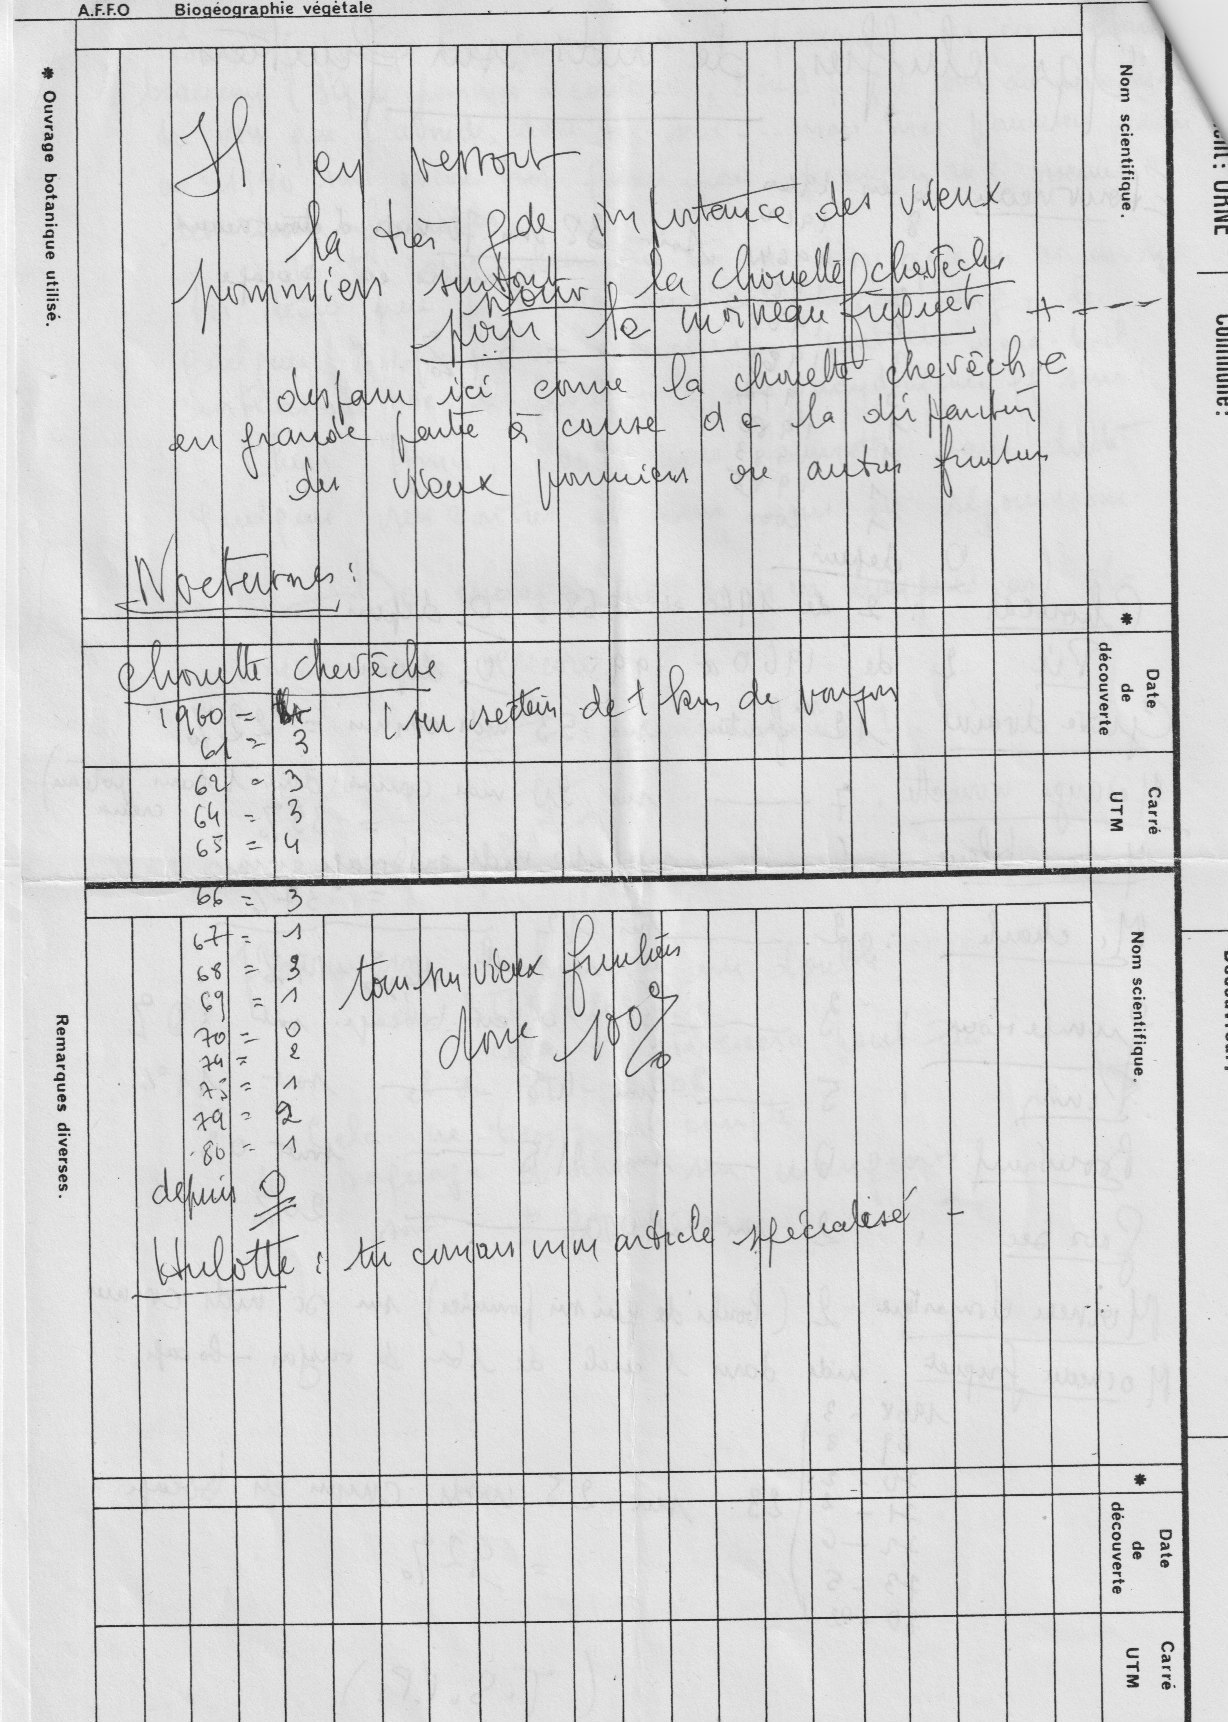 A.F.F.O Biogéographie végétale
* Ouvrage botanique utilisé.
Nom scientifique.
ORNE
Commune:
Il en ressort
la très gde importance des vieux
pommiers surtout
pour la chouette chevêche
pour le moineau friquet +
disparu ici comme la chouette chevêche
en grande partie à cause de la disparition
des vieux pommiers ou autres fruitiers
Nocturnes :
*
Date de découverte
Carré UTM
Chouette chevêche
1960 = ( sur secteur de 1 km de rayon
61 = 3
62 = 3
64 = 3
65 = 4
66 = 3
67 = 1
68 = 3
69 = 1
tous sur vieux fruitiers
donc 100%
70 = 0
74 = 2
75 = 1
79 = 2
80 = 1
depuis 0
Hulotte : tu connais mon article spécialisé -
Remarques diverses.
Nom scientifique.
*
Date de découverte
Carré UTM